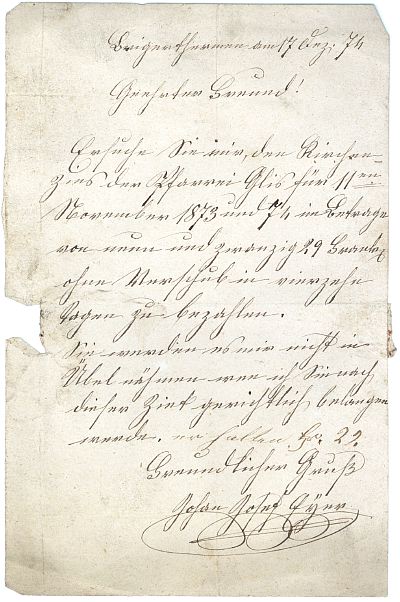 Brigerthermen am 17 Dez. 74
Geehrter Freund!
Ersuche Sie mir, den Kirchen-
zins der Pfarrei Glis für 11ten
November 1873 und 74 im Betrage
von neun und zwanzig 29 Franken
ohne Verschub in vierzehn
Tagen zu bezahlen.
Sie werden es mir nicht in
Übel nähmen wen ich Sie nach
dieser Ziet gerichtlich belangen
werde. erhalten Fr. 29.
Freundlicher Gruß
Johan Josef Eyer